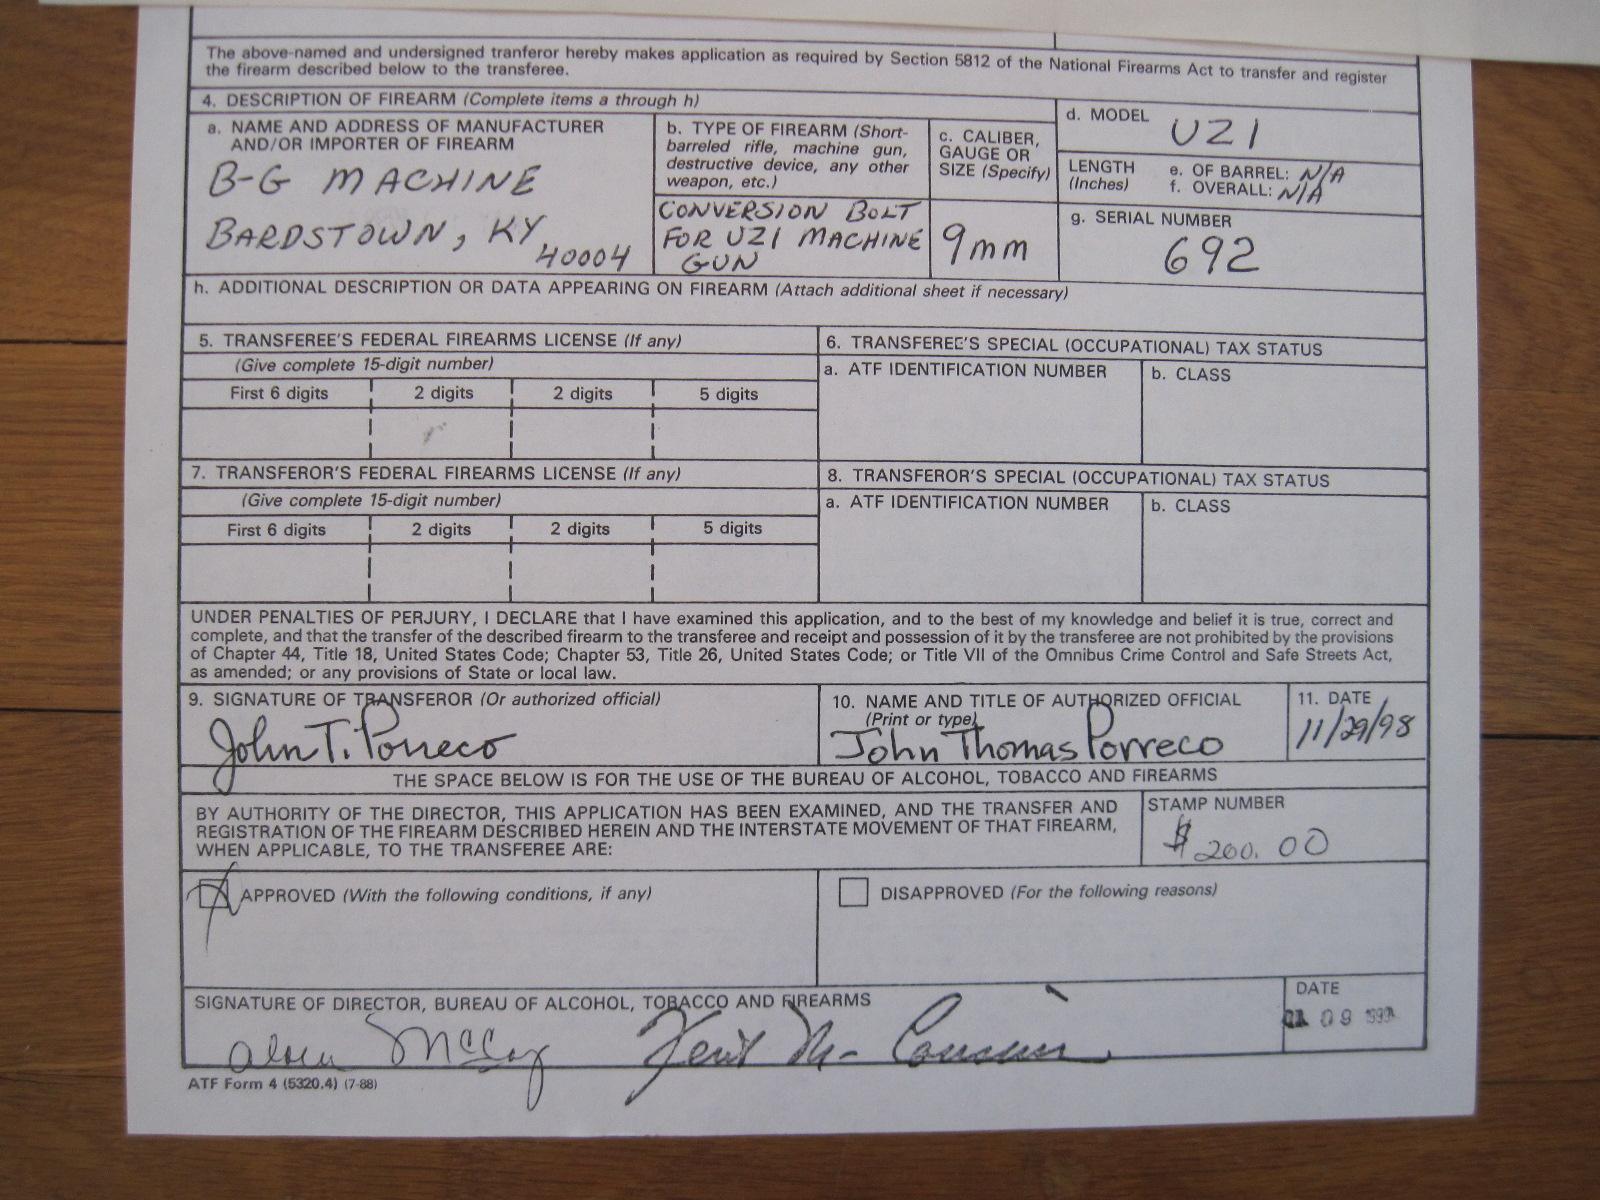 The above-named and undersigned tranferor hereby makes application as required by Section 5812 of the National Firearms Act to transfer and register
the firearm described below to the transferee.
4. DESCRIPTION OF FIREARM (Complete items a through h)
a. NAME AND ADDRESS OF MANUFACTURER
AND/OR IMPORTER OF FIREARM
B-G MACHINE
BARDSTOWN, KY
40004
b. TYPE OF FIREARM (Short-
barreled rifle, machine gun,
destructive device, any other
weapon, etc.)
CONVERSION BOLT
FOR UZI MACHINE
GUN
c. CALIBER,
GAUGE OR
SIZE (Specify)
9mm
d. MODEL
UZI
LENGTH
(Inches)
e. OF BARREL: N/A
f. OVERALL: N/A
g. SERIAL NUMBER
692
h. ADDITIONAL DESCRIPTION OR DATA APPEARING ON FIREARM (Attach additional sheet if necessary)
5. TRANSFEREE'S FEDERAL FIREARMS LICENSE (If any)
(Give complete 15-digit number)
First 6 digits 2 digits 2 digits 5 digits
6. TRANSFEREE'S SPECIAL (OCCUPATIONAL) TAX STATUS
a. ATF IDENTIFICATION NUMBER b. CLASS
7. TRANSFEROR'S FEDERAL FIREARMS LICENSE (If any)
(Give complete 15-digit number)
First 6 digits 2 digits 2 digits 5 digits
8. TRANSFEROR'S SPECIAL (OCCUPATIONAL) TAX STATUS
a. ATF IDENTIFICATION NUMBER b. CLASS
UNDER PENALTIES OF PERJURY, I DECLARE that I have examined this application, and to the best of my knowledge and belief it is true, correct and
complete, and that the transfer of the described firearm to the transferee and receipt and possession of it by the transferee are not prohibited by the provisions
of Chapter 44, Title 18, United States Code; Chapter 53, Title 26, United States Code; or Title VII of the Omnibus Crime Control and Safe Streets Act,
as amended; or any provisions of State or local law.
9. SIGNATURE OF TRANSFEROR (Or authorized official)
John T. Porreco
10. NAME AND TITLE OF AUTHORIZED OFFICIAL
(Print or type)
John Thomas Porreco
11. DATE
11/29/98
THE SPACE BELOW IS FOR THE USE OF THE BUREAU OF ALCOHOL, TOBACCO AND FIREARMS
BY AUTHORITY OF THE DIRECTOR, THIS APPLICATION HAS BEEN EXAMINED, AND THE TRANSFER AND
REGISTRATION OF THE FIREARM DESCRIBED HEREIN AND THE INTERSTATE MOVEMENT OF THAT FIREARM,
WHEN APPLICABLE, TO THE TRANSFEREE ARE:
STAMP NUMBER
$ 200.00
APPROVED (With the following conditions, if any)
DISAPPROVED (For the following reasons)
SIGNATURE OF DIRECTOR, BUREAU OF ALCOHOL, TOBACCO AND FIREARMS
McCoy
DATE
09
ATF Form 4 (5320.4) (7-88)